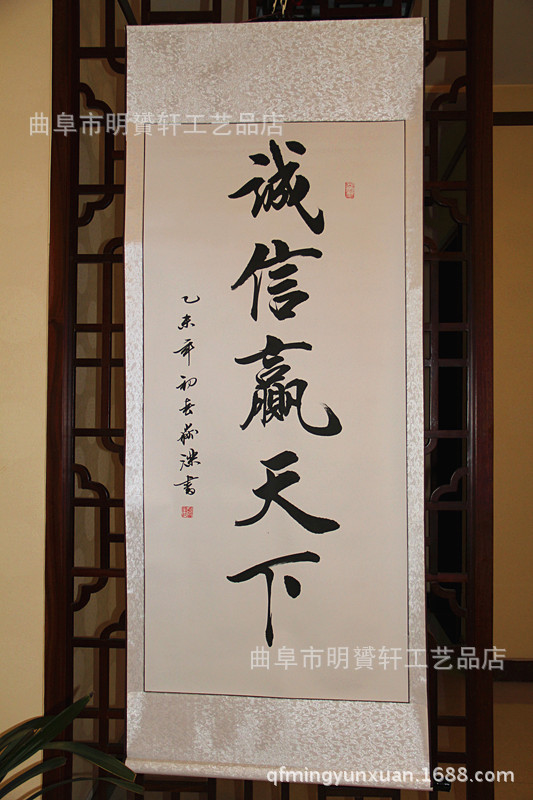 曲阜市明贇轩工艺品店
诚信赢天下
乙未年初春
书
曲阜市明贇轩工艺品店
qfmingyunxuan.1688.com